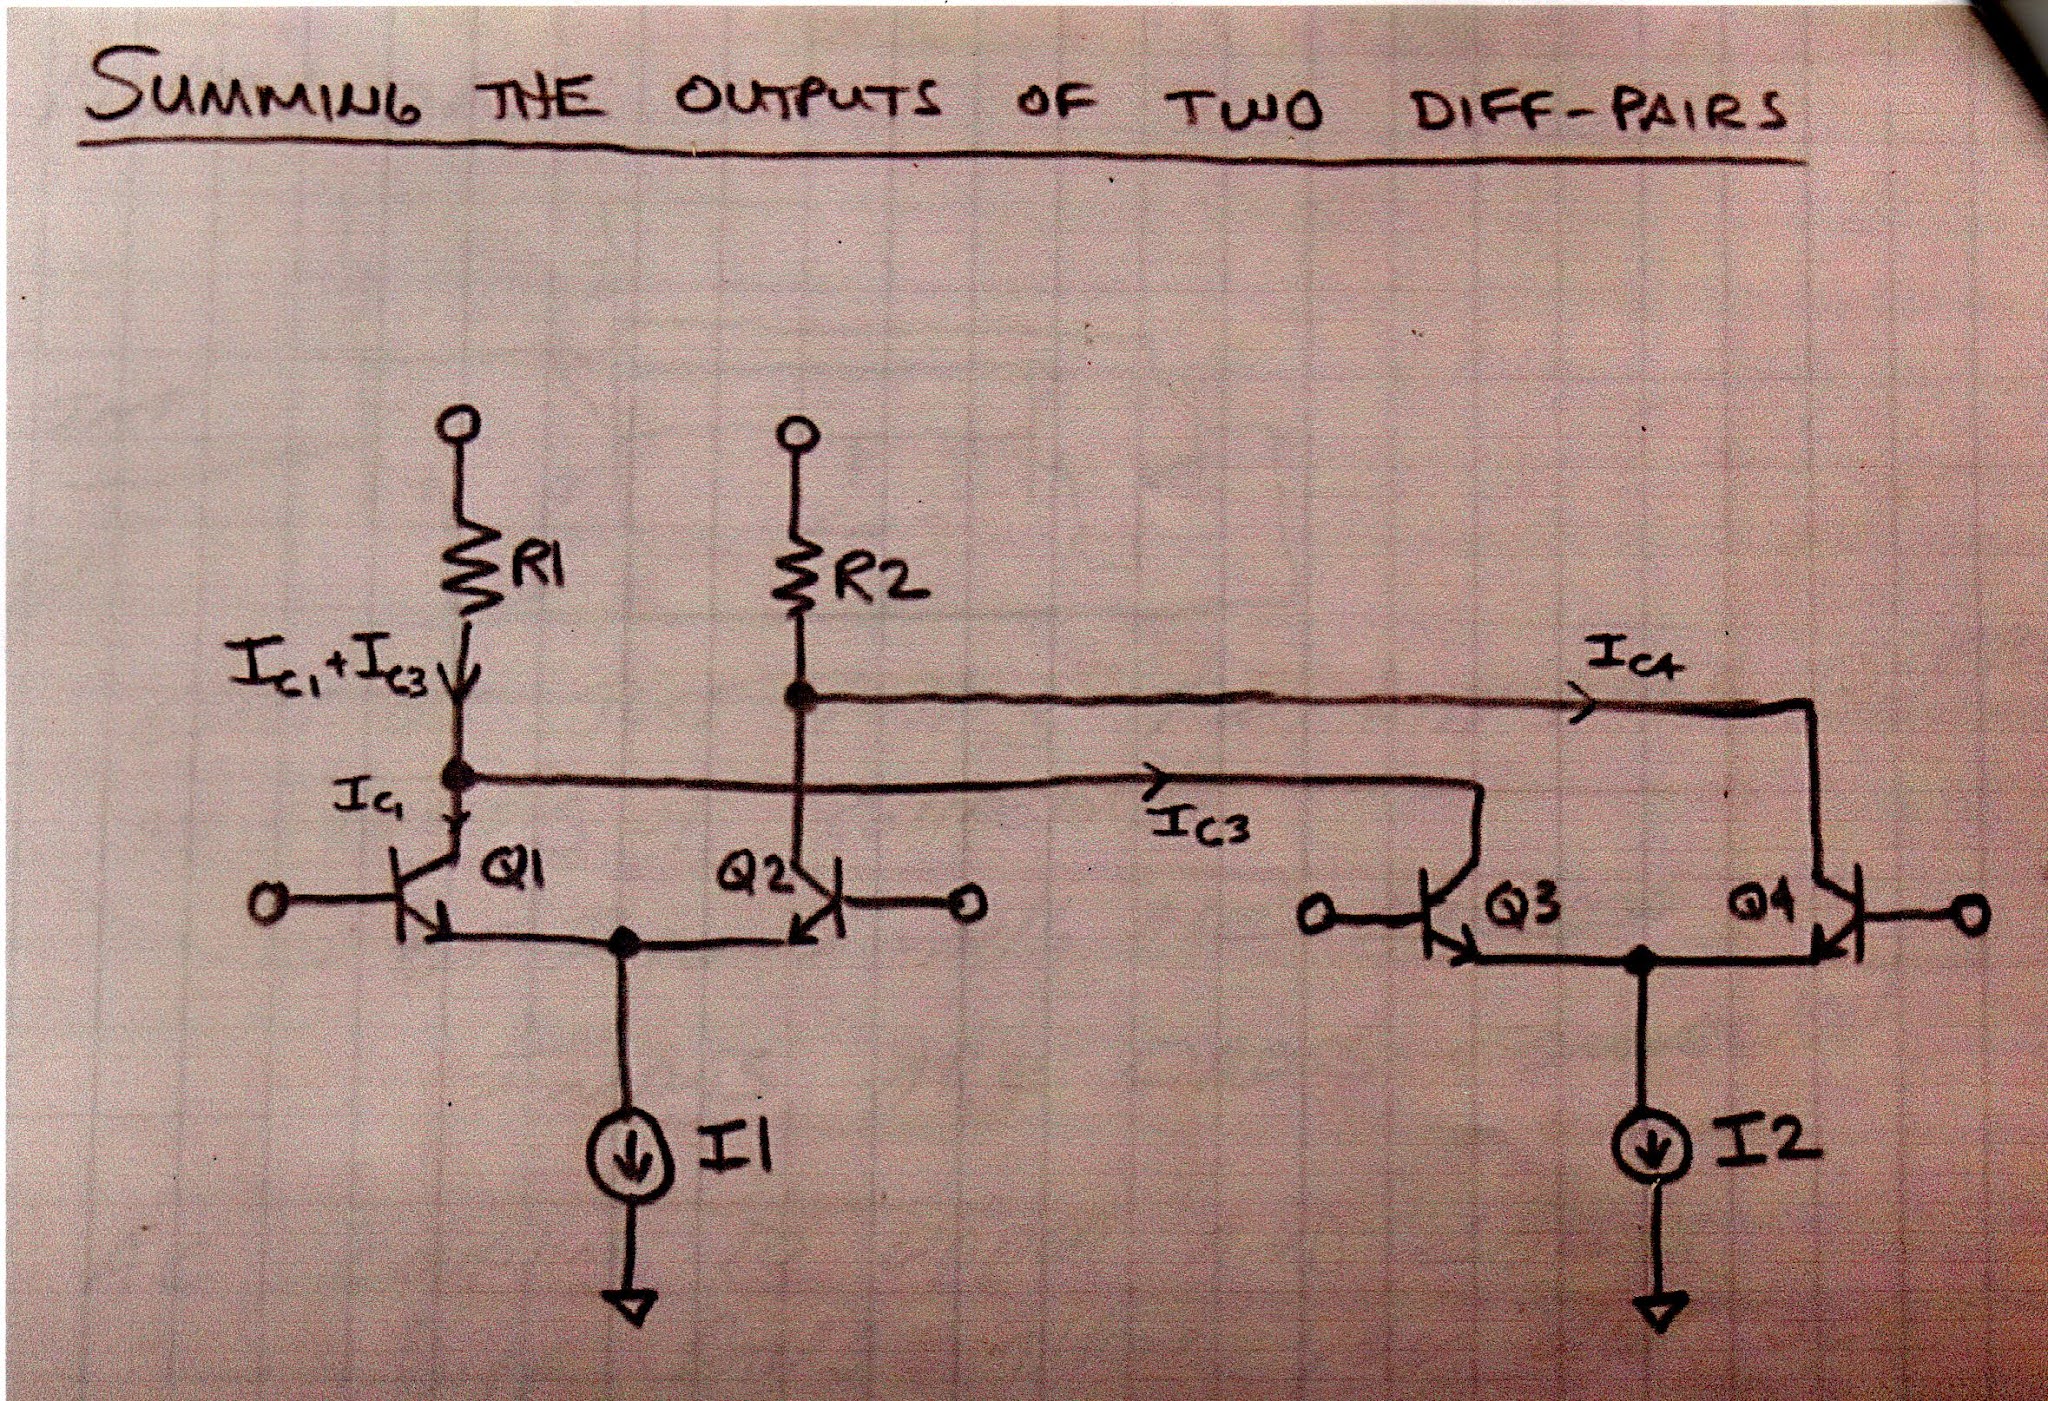 SUMMING THE OUTPUTS OF TWO DIFF-PAIRS
R1
R2
IC1 + IC3
IC4
IC1
IC3
Q1
Q2
Q3
Q4
I1
I2